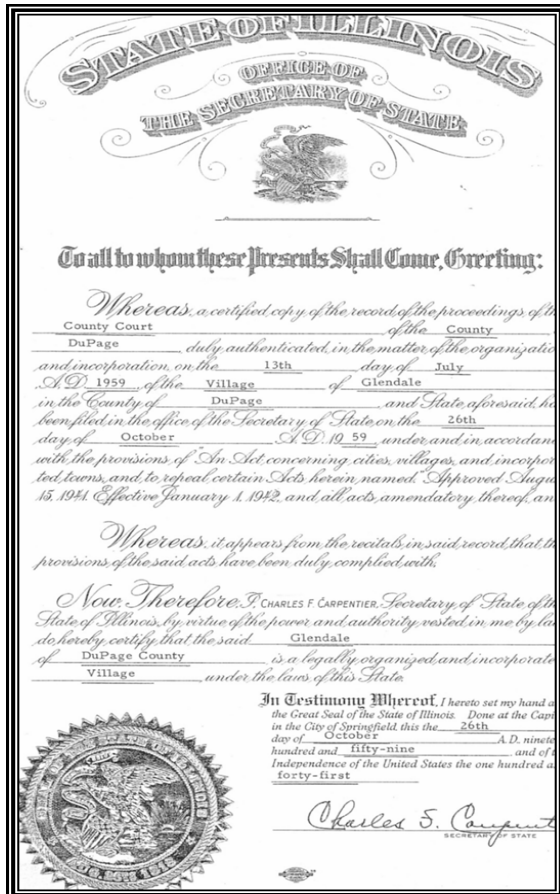 STATE OF ILLINOIS
OFFICE OF
THE SECRETARY OF STATE
To all to whom these Presents Shall Come, Greeting:
Whereas, a certified copy of the record of the proceedings of th
County Court of the County
DuPage duly authenticated, in the matter of the organizatio
and incorporation, on the 13th day of July
A.D. 1959 of the Village of Glendale
in the County of DuPage and State aforesaid, ha
been filed in the office of the Secretary of State, on the 26th
day of October A.D. 19 59 under and in accordan
with the provisions of "An Act concerning cities, villages, and incorpor
ted towns, and to repeal certain Acts herein named." Approved Augu
15, 1941. Effective January 1, 1942, and all acts amendatory thereof, an
Whereas, it appears from the recitals in said record that th
provisions of the said acts have been duly complied with,
Now Therefore, I, CHARLES F. CARPENTIER, Secretary of State of th
State of Illinois, by virtue of the power and authority vested in me by la
do hereby certify that the said Glendale
of DuPage County is a legally organized and incorporate
Village under the laws of this State.
In Testimony Whereof, I hereto set my hand a
the Great Seal of the State of Illinois. Done at the Capi
in the City of Springfield, this the 26th
day of October A.D. ninete
hundred and fifty-nine and of t
Independence of the United States the one hundred a
forty-first
Charles F. Carpent
SECRETARY OF STATE